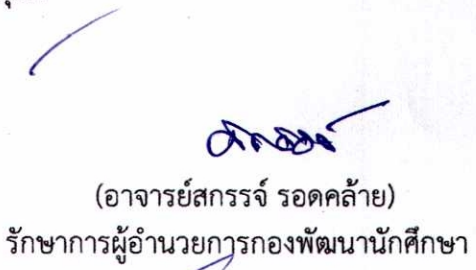 (อาจารย์สกรรจ์ รอดคล้าย)
รักษาการผู้อำนวยการกองพัฒนานักศึกษา